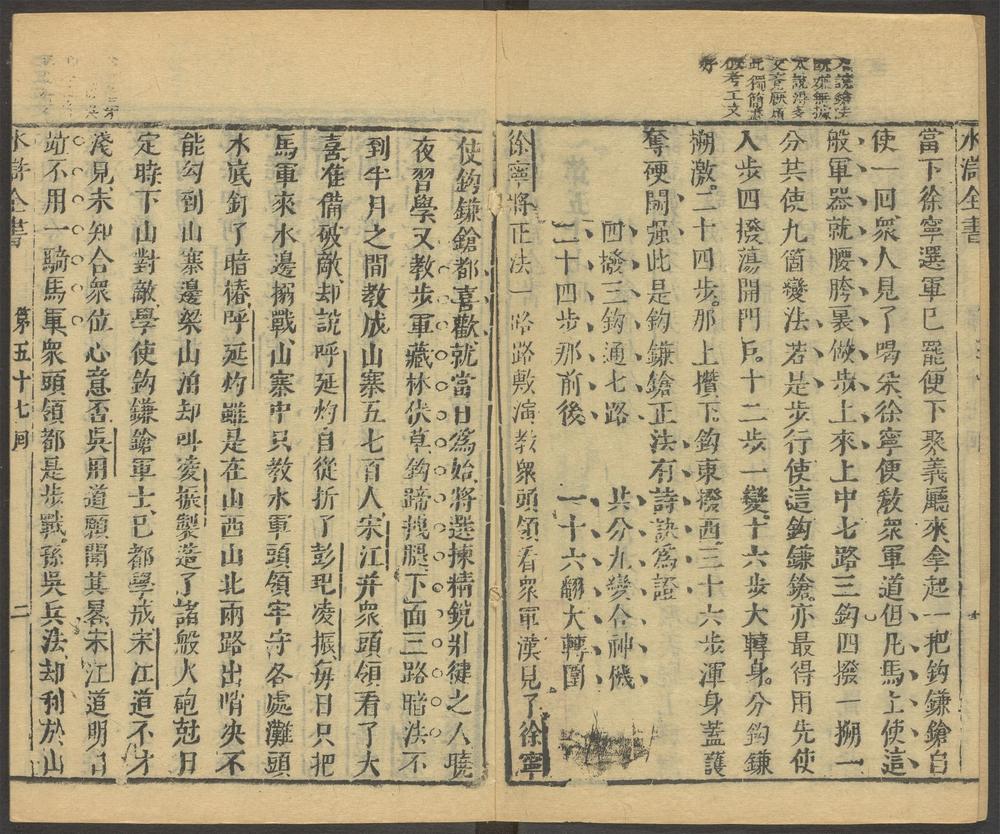 水滸全書
當下徐寧選軍已罷便下聚義廳來拿起一把鈎鎌鎗自
使一回衆人見了喝采徐寧便敎衆軍道但凡馬上使這
般軍器就腰胯裏做步上來上中七路三鈎四撥一搠一
分共使九箇變法若是步行使這鈎鎌鎗亦最得用先使
人步四撥蕩開門戶十二步一變十六步大轉身分鈎鎌
搠繳二十四步那上攢下鈎東撥西三十六步渾身蓋護
奪硬鬭强此是鈎鎌鎗正法有詩訣爲證
四撥三鈎通七路 共分九變合神機
二十四步那前後 一十六翻大轉圍
徐寧將正法一路路敷演教衆頭領看衆軍漢見了徐寧
使鈎鎌鎗都喜歡就當日爲始將選揀精銳壯健之人曉
夜習學又教步軍藏林伏草鈎蹄拽腿下面三路暗法不
到半月之間教成山寨五七百人宋江并衆頭領看了大
喜准備破敵却說呼延灼自從折了彭玘凌振每日只把
馬軍來水邊搦戰山寨中只教水軍頭領牢守各處灘頭
水底釘了暗樁呼延灼雖是在山西山北兩路出哨决不
能勾到山寨邊梁山泊却叫凌振製造了諸般火砲尅日
定時下山對敵學使鈎鎌鎗軍士已都學成宋江道不才
淺見未知合衆位心意否吳用道願聞其畧宋江道明日
竝不用一騎馬軍衆頭領都是步戰孫吳兵法却利於山
水滸全書 第五十七囘 二